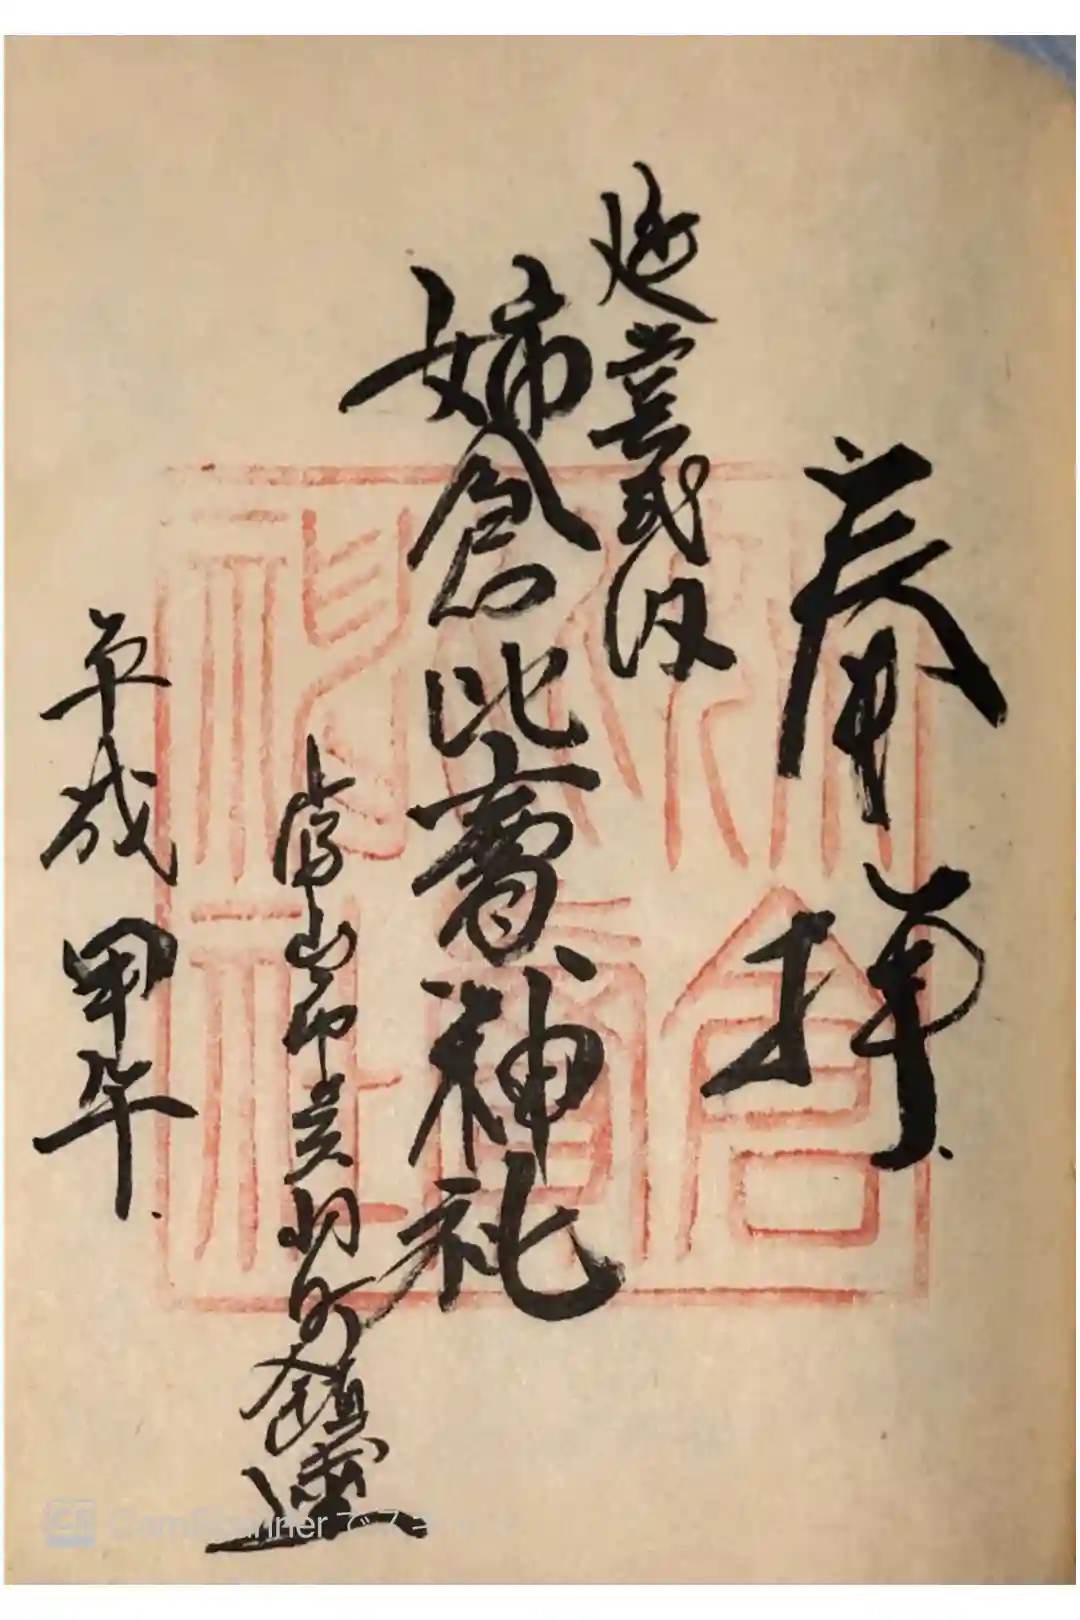 奉拝
延喜式内
姉倉比賣神社
富山市呉羽町鎮座
平成甲午
CamScannerでスキャン